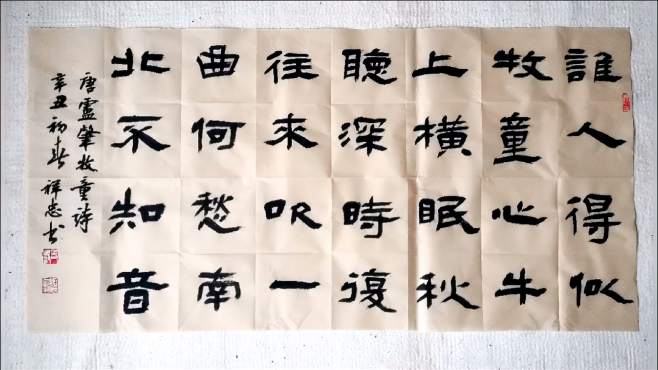 誰人得似
牧童心牛
上橫眠秋
聽深時復
往來吹一
曲何愁南
北不知音
唐靈肇牧童詩
辛丑初春祥忠书